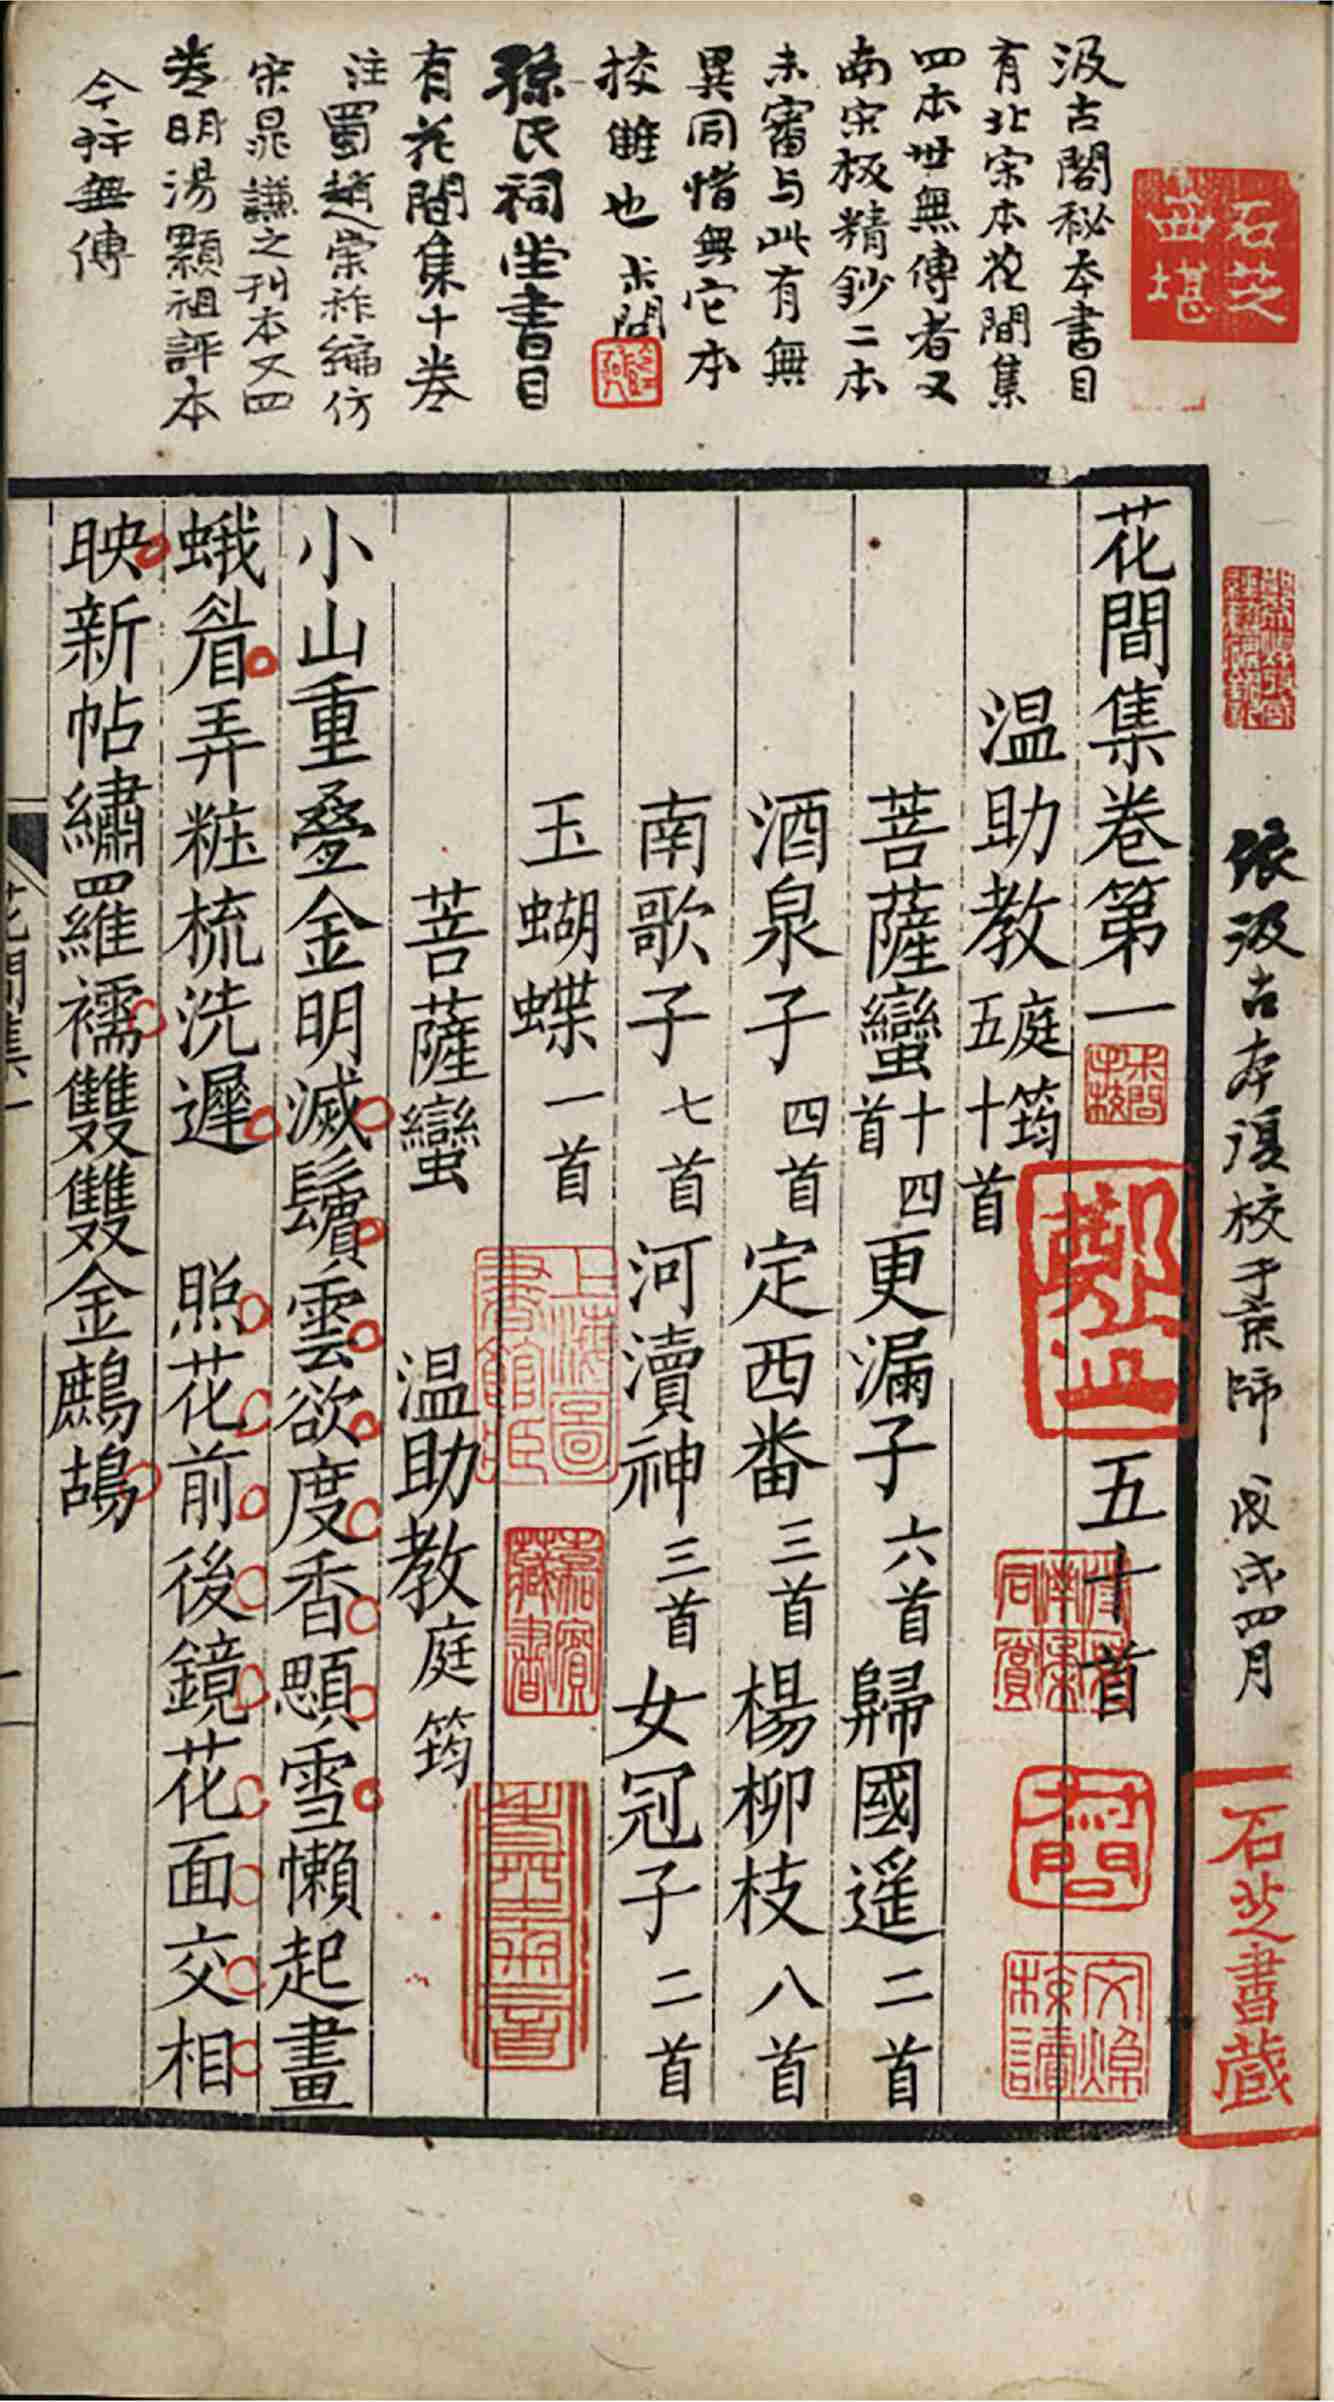 汲古閣秘本書目
有北宋本花間集
四本世無傳者又
南宋板精鈔二本
未審与此有無
異同惜無它本
挍雠也 未問
孫氏祠堂書目
有花間集十卷
注蜀趙崇祚編仿
宋晁謙之刊本又四
卷明湯顯祖評本
今詳無傳
石芝
西堪
依汲古本復校于京師 戊戌四月
石芝書藏
花間集卷第一 五十首
温助教庭筠 五十首
菩薩蠻十四首 更漏子六首 歸國遥二首
酒泉子四首 定西番三首 楊柳枝八首
南歌子七首 河瀆神三首 女冠子二首
玉蝴蝶一首
菩薩蠻 温助教庭筠
小山重疊金明滅鬢雲欲度香顋雪懶起畫
蛾眉弄粧梳洗遲 照花前後鏡花面交相
映新帖繡羅襦雙雙金鷓鴣
上海圖
書館藏
文焯
校讀
花間集一
一